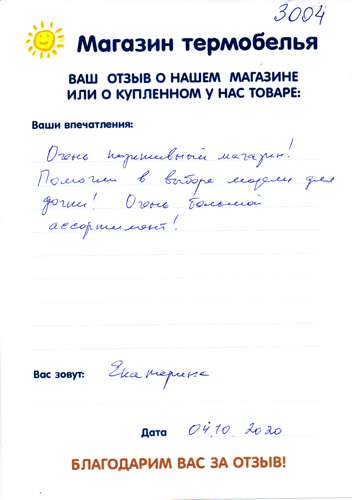 3004
Магазин термобелья
ВАШ ОТЗЫВ О НАШЕМ МАГАЗИНЕ
ИЛИ О КУПЛЕННОМ У НАС ТОВАРЕ:
Ваши впечатления:
Очень позитивный магазин!
Помогли в выборе модели для
дочки! Очень большой
ассортимент!
Вас зовут: Екатерина
Дата 04.10.2020
БЛАГОДАРИМ ВАС ЗА ОТЗЫВ!